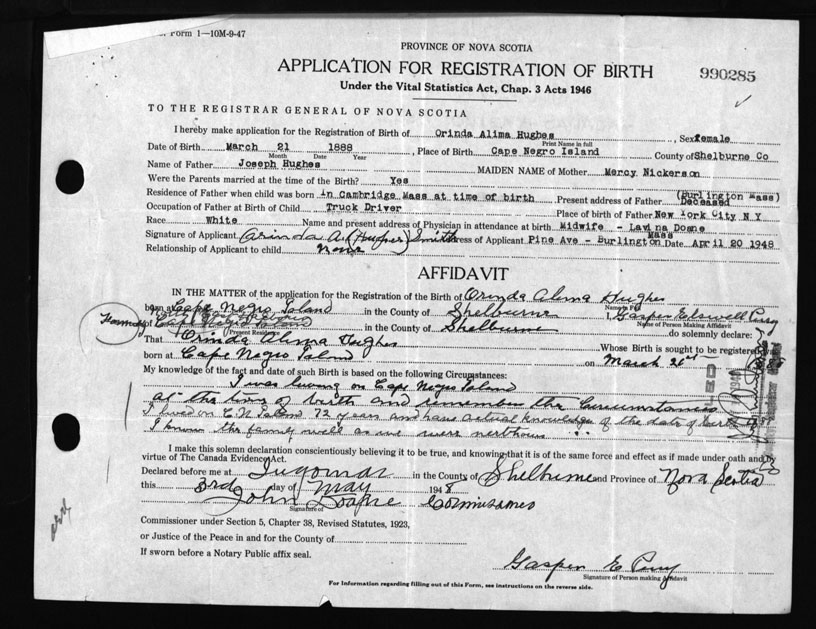 Form 1—10M-9-47
PROVINCE OF NOVA SCOTIA
APPLICATION FOR REGISTRATION OF BIRTH
990285
Under the Vital Statistics Act, Chap. 3 Acts 1946
TO THE REGISTRAR GENERAL OF NOVA SCOTIA
I hereby make application for the Registration of Birth of Orinda Alima Hughes, Sex female
Print Name in full
Date of Birth March 21 1888, Place of Birth Cape Negro Island County of Shelburne Co
Month Date Year
Name of Father Joseph Hughes MAIDEN NAME of Mother Mercy Nickerson
Were the Parents married at the time of the Birth? Yes
(Burlington Mass)
Residence of Father when child was born in Cambridge Mass at time of birth Present address of Father Deceased
Occupation of Father at Birth of Child Truck Driver Place of birth of Father New York City N Y
Race White Name and present address of Physician in attendance at birth Midwife - Lavina Doane
Signature of Applicant Orinda A. (Hughes) Smith Address of Applicant Pine Ave - Burlington Mass Date April 20 1948
Relationship of Applicant to child None
AFFIDAVIT
IN THE MATTER of the application for the Registration of the Birth of Orinda Alima Hughes
born at Cape Negro Island in the County of Shelburne I, Gasper Perry
Name of Person Making Affidavit
Formerly of Cape Negro Island in the County of Shelburne do solemnly declare:
Present Residence
That Orinda Alima Hughes Whose Birth is sought to be registered
born at Cape Negro Island on March
My knowledge of the fact and date of such Birth is based on the following Circumstances:
I was living on Cape Negro Island
at the time of birth and remember the Circumstances
I lived on C.N. Island 72 years and have actual knowledge of the date of birth
I know the family well as we were
I make this solemn declaration conscientiously believing it to be true, and knowing that it is of the same force and effect as if made under oath and by
virtue of The Canada Evidence Act.
Declared before me at Ingomar in the County of Shelburne and Province of Nova Scotia
this 3rd day of May 1948
John
Signature of
Commissioner under Section 5, Chapter 38, Revised Statutes, 1923,
or Justice of the Peace in and for the County of
If sworn before a Notary Public affix seal.
Gasper E Perry
Signature of Person making Affidavit
For Information regarding filling out of this Form, see instructions on the reverse side.